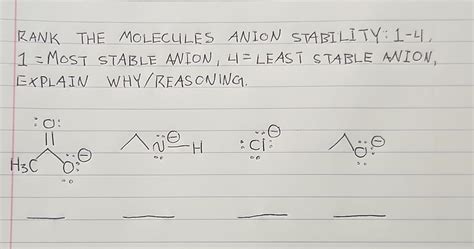 RANK THE MOLECULES ANION STABILITY: 1-4,
1 = MOST STABLE ANION, 4 = LEAST STABLE ANION,
EXPLAIN WHY/REASONING.
:O:
H3C O: ⊖ N ⊖ H :Cl: ⊖ O: ⊖